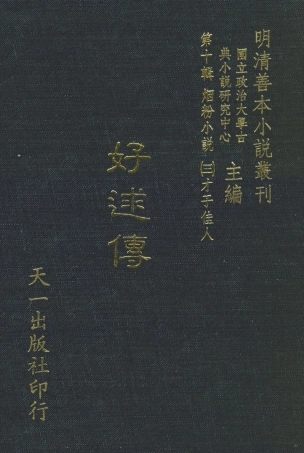 明清善本小說叢刊
國立政治大學古
典小說研究中心
主編
第十輯 烟粉小說 ㈡才子佳人
好逑傳
天一出版社印行